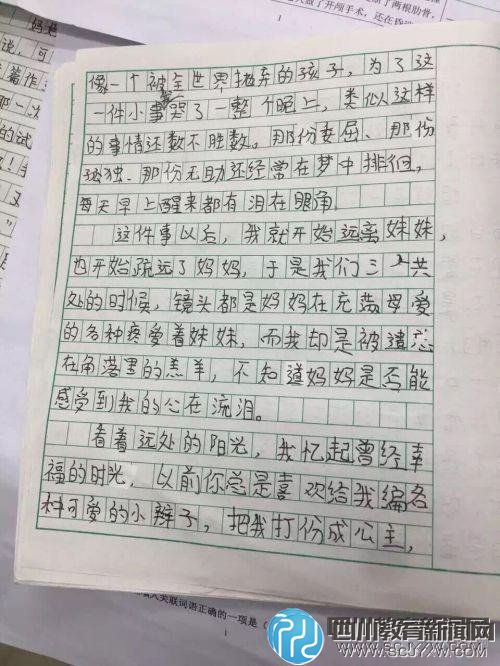 做了两根肋骨,
做了开颅手术,还在昏
1
妈总
说,可
篇作
那一次
的试
像一个被全世界抛弃的孩子,为了这
一件小事哭了一整个晚上,类似这样
的事情还数不胜数。那份委屈、那份
孤独、那份无助还经常在梦中排徊,
每天早上醒来都有泪在眼角。
这件事以后,我就开始远离妹妹,
也开始疏远了妈妈,于是我们三人共
处的时候,镜头都是妈妈在充满母爱
的各种疼爱着妹妹,而我却是被遗忘
在角落里的羔羊,不知道妈妈是否能
感受到我的心在流泪。
看着远处的阳光,我忆起曾经幸
福的时光,以前你总是喜欢给我编各
种可爱的小辫子,把我打份成公主,
入关联词语正确的一项是(
1
四川教育新闻网
WWW.SCJYXW.COM